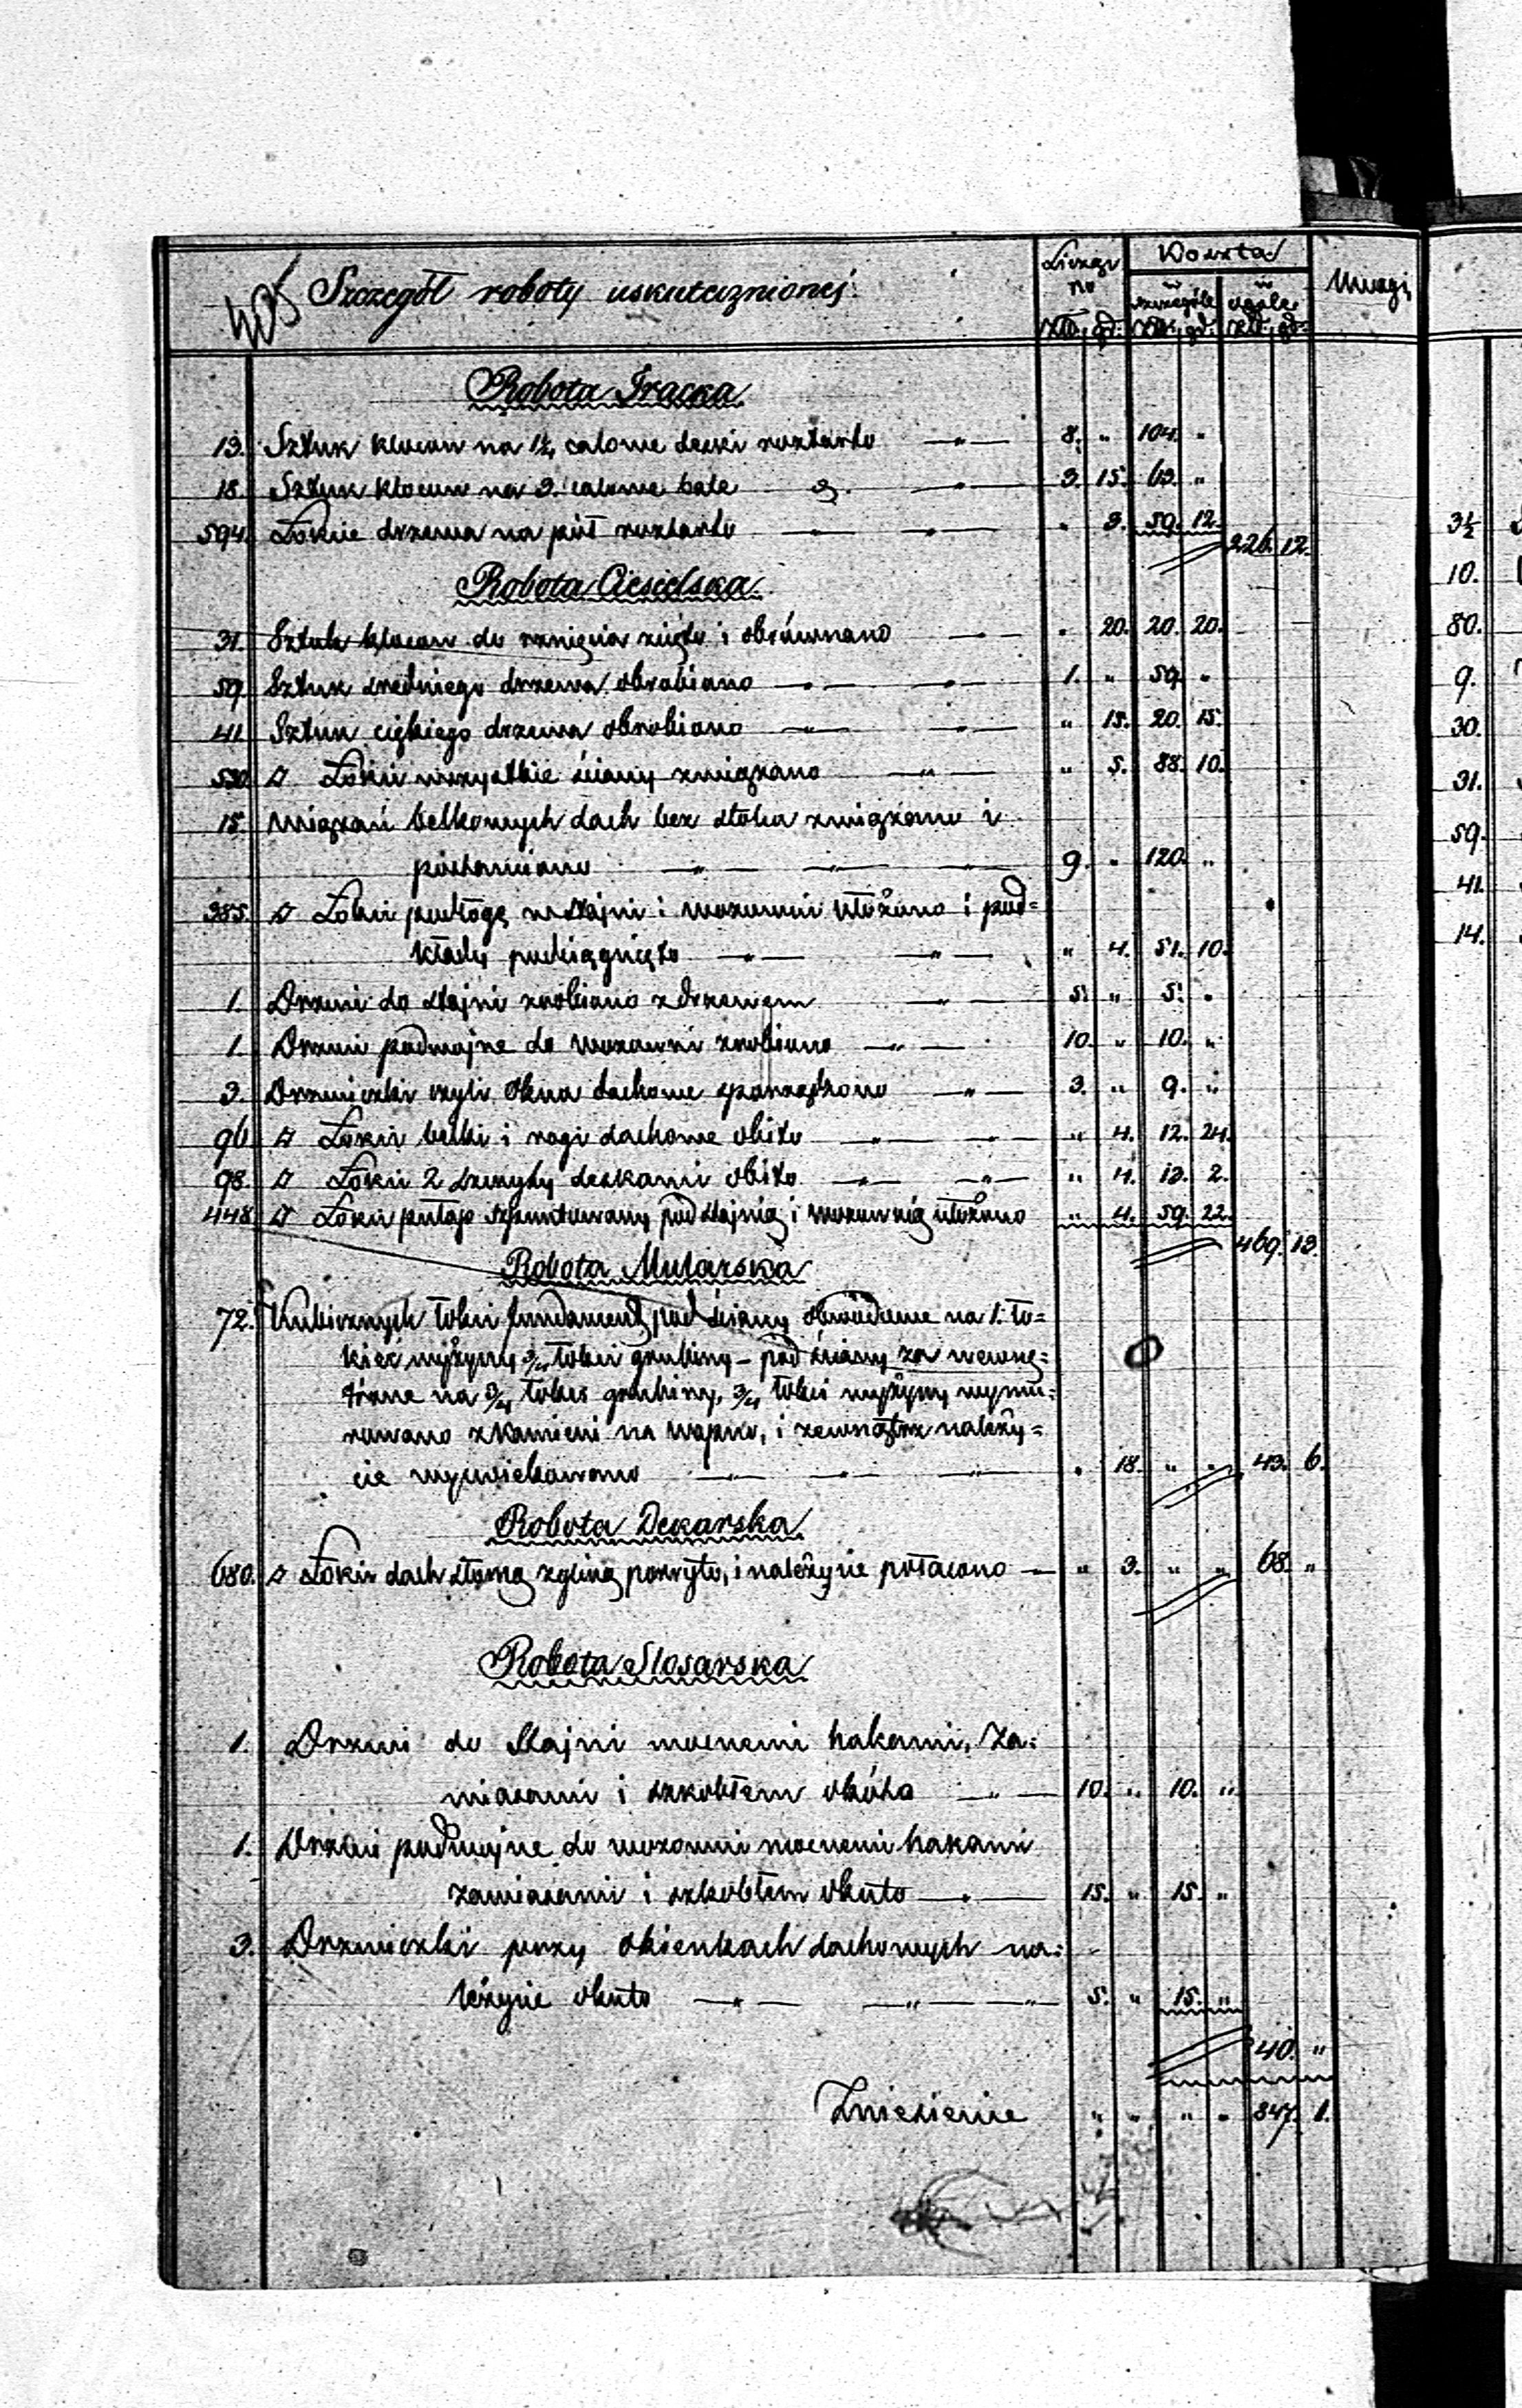 405 Szczegół roboty uskutecznionej. Licząc po złp. gr. Koszta w szczególe złp. gr. w ogóle złp. gr. Uwagi
Robota Tracka
13. Sztuk kloców na 1¼ calowe deski roztarto —"— 8. " 104. "
18. Sztuk kloców na 3. calowe bale 3. —"— 3. 15. 63. "
594. Łokcie drzewa na pół roztarto —"— —"— " 3. 59. 12.
226. 12.
Robota Ciesielska
31. Sztuk kloców do rznięcia zcięto i obrównano —"— " 20. 20. 20.
59. Sztuk średniego drzewa obrobiano —"— —"— 1. " 59. "
41. Sztuk ciękiego drzewa obrobiano —"— —"— " 15. 20. 15.
530. □ Łokci wszystkie ściany związano —"— " 5. 88. 10.
15. Wiązań belkowych dach bez stolca związano i
postawiano —"— —"— —"— 9. " 120. "
385. □ Łokci podłogę w stajni i wozowni ułożono i pod=
kłady podciągnięto —"— —"— " 4. 51. 10.
1. Drzwi do stajni zrobiono z drzeniem —"— 5. " 5. "
1. Drzwi podwojne do wozowni zrobiono —"— 10. " 10. "
3. Drzwiczki czyli okna dachowe sporządzono —"— 3. " 9. "
96. □ Łokci belki i rogi dachowe obito —"— —"— " 4. 12. 24.
98. □ Łokci 2 szczyty deskami obito —"— —"— " 4. 13. 2.
448. □ Łokci pułap szpuntowany pod stajnią i wozownią ułożono " 4. 59. 22.
469. 13.
Robota Mularska
72. Kubicznych łokci fundament pod ściany obwodowe na 1. ło=
kieć wyżyny ¾ łokci grubiny — pod ściany za wewnę=
trzne na ¾ łokci grubiny, ¾ łokci wyżyny wymu=
rowano z kamieni na wapno, i zewnątrz należy=
cie wyzwickowano —"— —"— —"— " 18. " " 43. 6.
Robota Dekarska
680. □ Łokci dach słomą z gliną pokryto, i należycie połacono — " 3. " " 68. "
Robota Slosarska
1. Drzwi do Stajni mocnemi hakami, Za=
wiasami i szkoblem okuto —"— 10. " 10. "
1. Drzwi podwojne do wozowni mocnemi hakami
zawiasami i szkoblem okuto —"— 15. " 15. "
3. Drzwiczki przy okienkach dachowych na=
leżycie okuto —"— —"— —"— 5. " 15. "
40. "
Zniesienie " " " " 847. 1.
3½
10.
80.
9.
30.
31.
59.
41.
14.